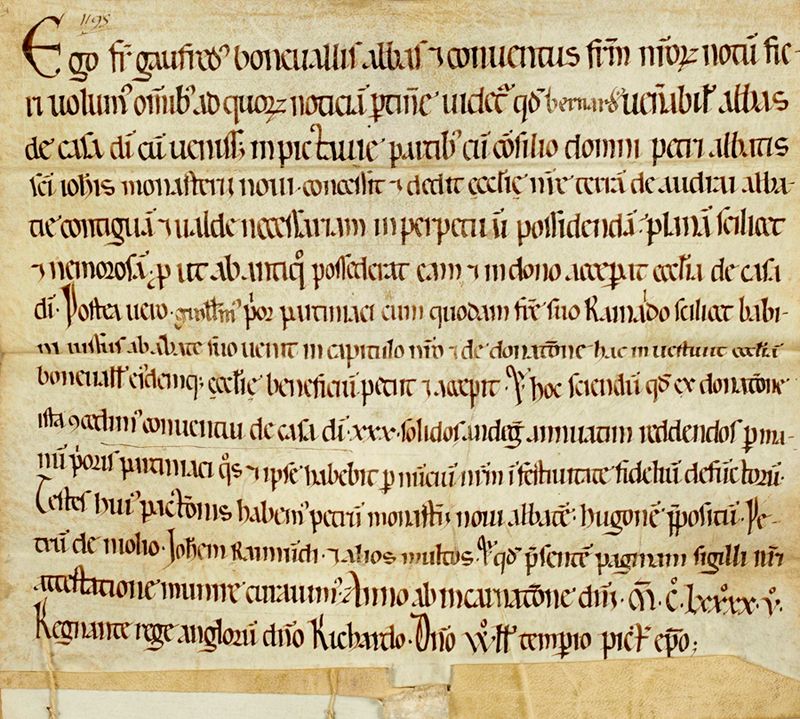 1195
Ego fr̄ gaufred᷒ boneuallis abbas ⁊ conuentus fr̄m nr̄oꝝ notū fie-
ri uolum᷒ om̄ib᷒ ad quoꝝ noticiā ꝑtinē uidet᷑ qđ bernard᷒ uen̄abil̄ abbas
de casa dī cū uenisset in pictauie partib᷒ cū cōsilio domni petri abbatis
sc̄i ioh̄is monasterii noui concessit ⁊ dedit eccl̄ie nr̄e terrā de audrau abba-
tie contiguā ⁊ ualde necessariam in perpetuū possidendā planā scilicet
⁊ nemorosā ꝓ ut ab antiq̊ possederat eam ⁊ in dono accepit eccl̄ia de casa
dī. Postea uero guill̄m᷒ p̓or partiniaci cum quodam fr̄e suo Ramado scilicet babi-
ni iussus ab abbate suo uenit in capitulo nr̄o ⁊ de donatōne hac inuestiuit eccl̄iā
boneuall̄ eidemq; eccl̄ie beneficiū petiit ⁊ accepit. Et hoc sciendū qđ ex donatōne
ista ꝯcedim᷒ conuentui de casa dī .xxx. solidos andeg̃ annuatim reddendos ꝑ ma-
nū p̓oris partiniaci q̊s ⁊ ipse habebit ꝑ nūciū nr̄m ī festiuitate fidelium defūctorū.
Testes hui᷒ pactōnis habem᷒ petrū monast̄ii noui abbatē. hugonē p̄positū. Pe-
trū de molio. Joh̄em Raimūdi. ⁊ alios multos. Et qđ p̄sentē paginam sigilli nr̄i
attestatione munire curauim᷒. Anno ab incarnatōne dn̄i. M̊. C̊. Lxxxx. v̊.
Regnante rege anglorū dn̄o Richardo. Dn̄o W̊. ill̄ temp̄io pict̄ ep̄o;